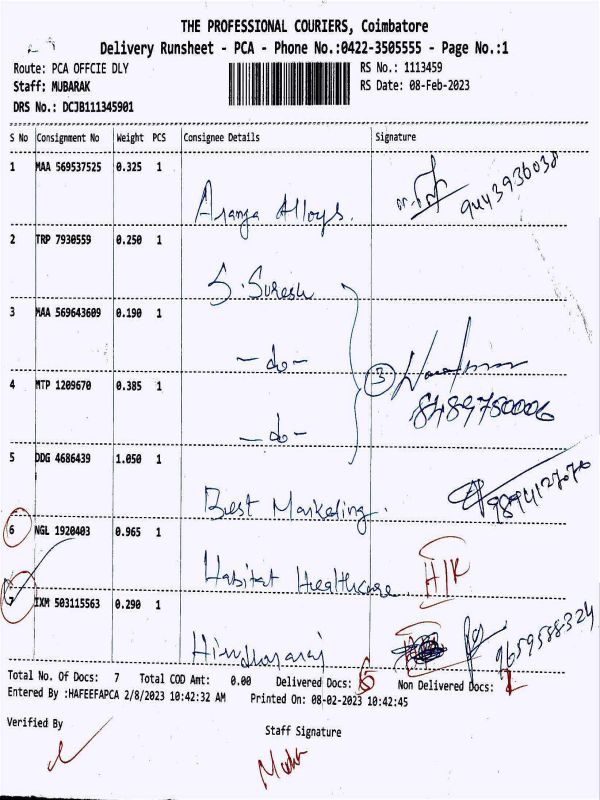 THE PROFESSIONAL COURIERS, Coimbatore
Delivery Runsheet - PCA - Phone No.:0422-3505555 - Page No.:1
Route: PCA OFFCIE DLY RS No.: 1113459
Staff: MUBARAK RS Date: 08-Feb-2023
DRS No.: DCJB111345901
S No Consignment No Weight PCS Consignee Details Signature
1 MAA 569537525 0.325 1
Aranga Alloys. 9443936038
2 TRP 7930559 0.250 1
S. Suresh
3 MAA 569643609 0.190 1
-do- 3
4 MTP 1209670 0.385 1
8489750006
-do-
5 DDG 4686439 1.050 1
Best Marketing. 9894127070
6 NGL 1920403 0.965 1
Habitat Healthcare. H/K
7 IXM 503115563 0.290 1
9659588324
Total No. Of Docs: 7 Total COD Amt: 0.00 Delivered Docs: 6 Non Delivered Docs: 1
Entered By :HAFEEFAPCA 2/8/2023 10:42:32 AM Printed On: 08-02-2023 10:42:45
Verified By Staff Signature